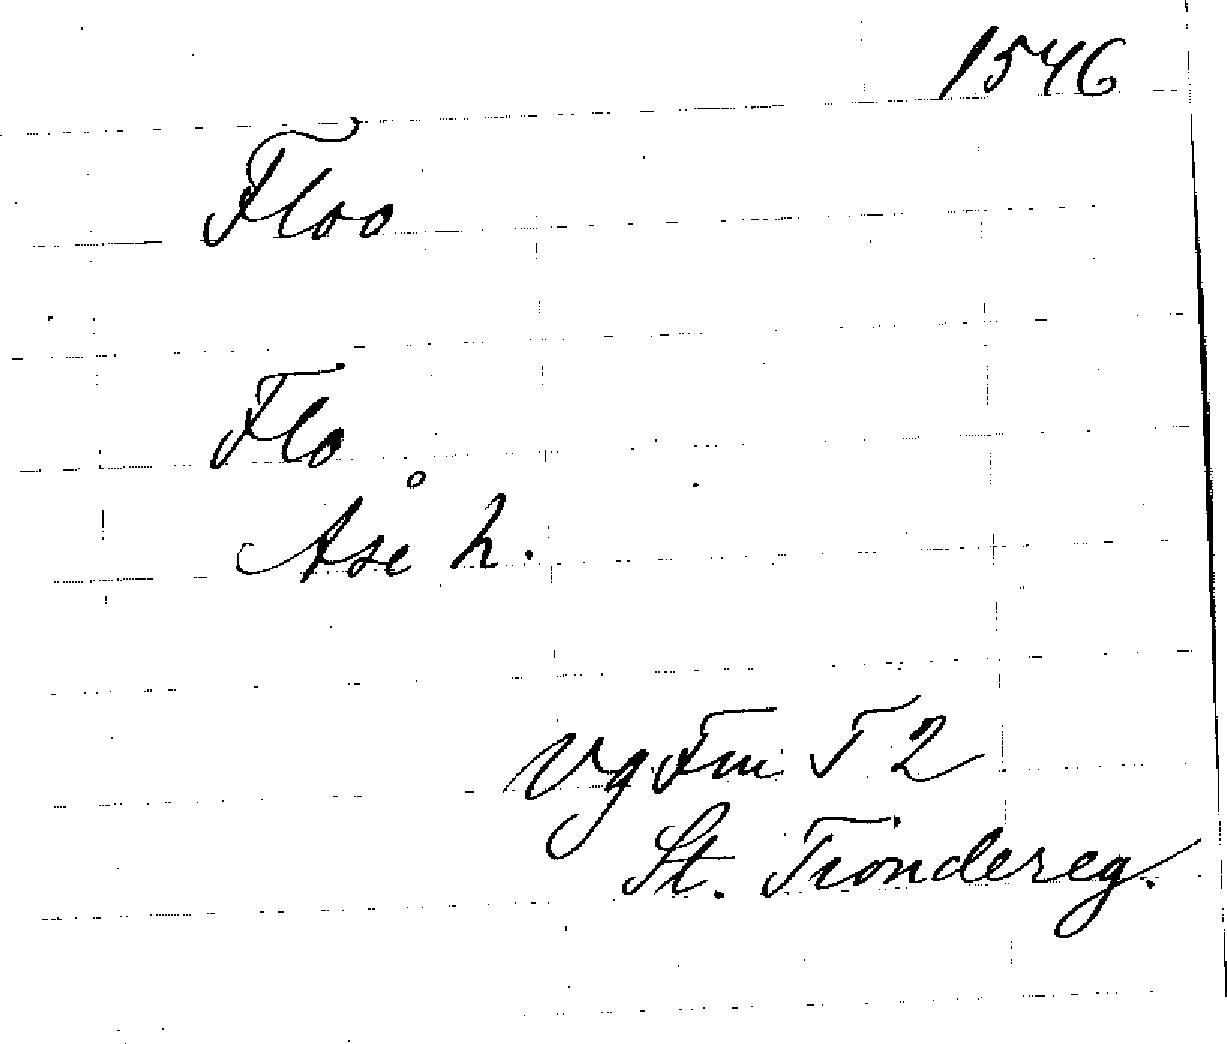 1546
Floo
Flo
Åse h.
Vg Fm T 2
St. Tiondereg.